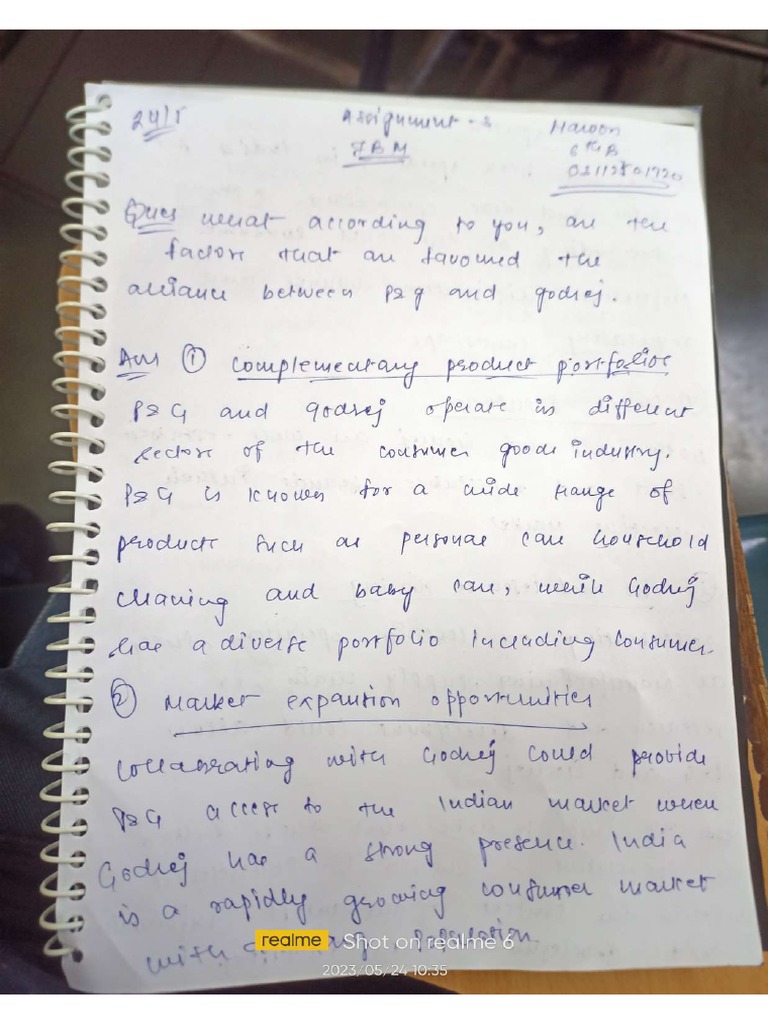 24/5
Assignment - 2
Haroon
IBM
6th B
Ques what according to you, are the
factors that are favoured the
alliance between P&G and godrej.
Ans ① Complementary product portfolios
P&G and godrej operate in different
sectors of the consumer goods industry.
P&G is known for a wide range of
products such as personal care household
cleaning and baby care, while Godrej
has a diverse portfolio including consumer.
② Market expansion opportunities
Collaborating with Godrej could provide
P&G access to the Indian market where
Godrej has a strong presence. India
is a rapidly growing consumer market
with population
realme Shot on realme 6
2023/05/24 10:35